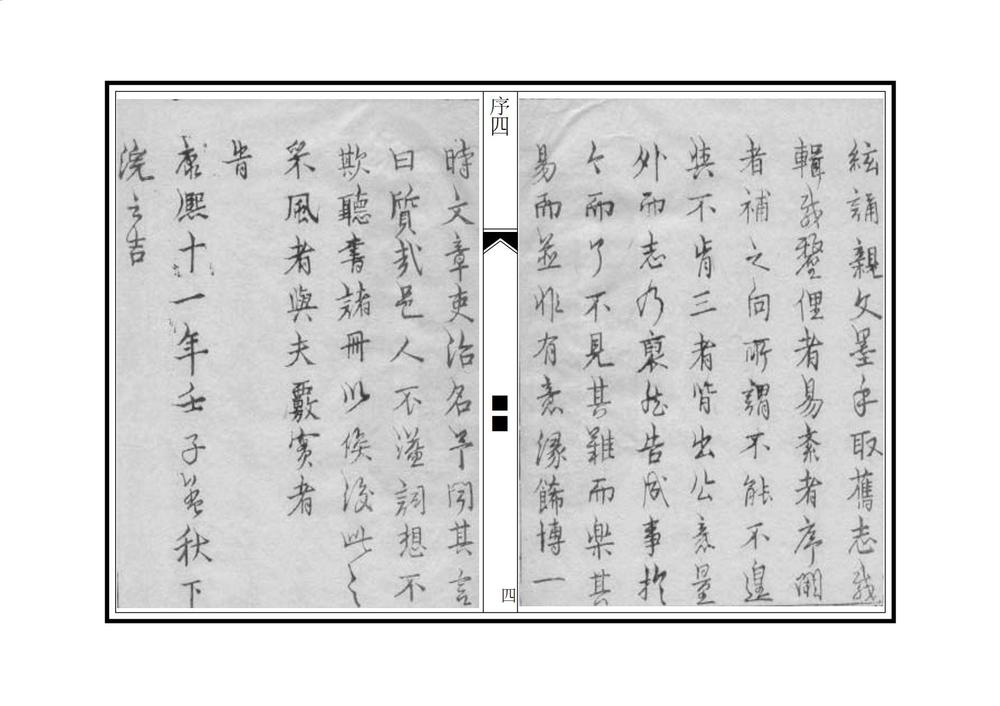 絃誦親文墨手取舊志裁
輯裁鏧俚者易紊者序闕
者補之向所謂不能不遑
與不肯三者皆出公意量
外而志乃裒然告成事於
令而了不見其難而樂其
易而並非有意緣飾博一
序四
四
時文章吏治名予聞其言
曰質哉邑人不溢詞想不
欺聽書諸冊以俟後此之
采風者與夫覈實者
旹
康熙十一年壬子孟秋下
浣之吉